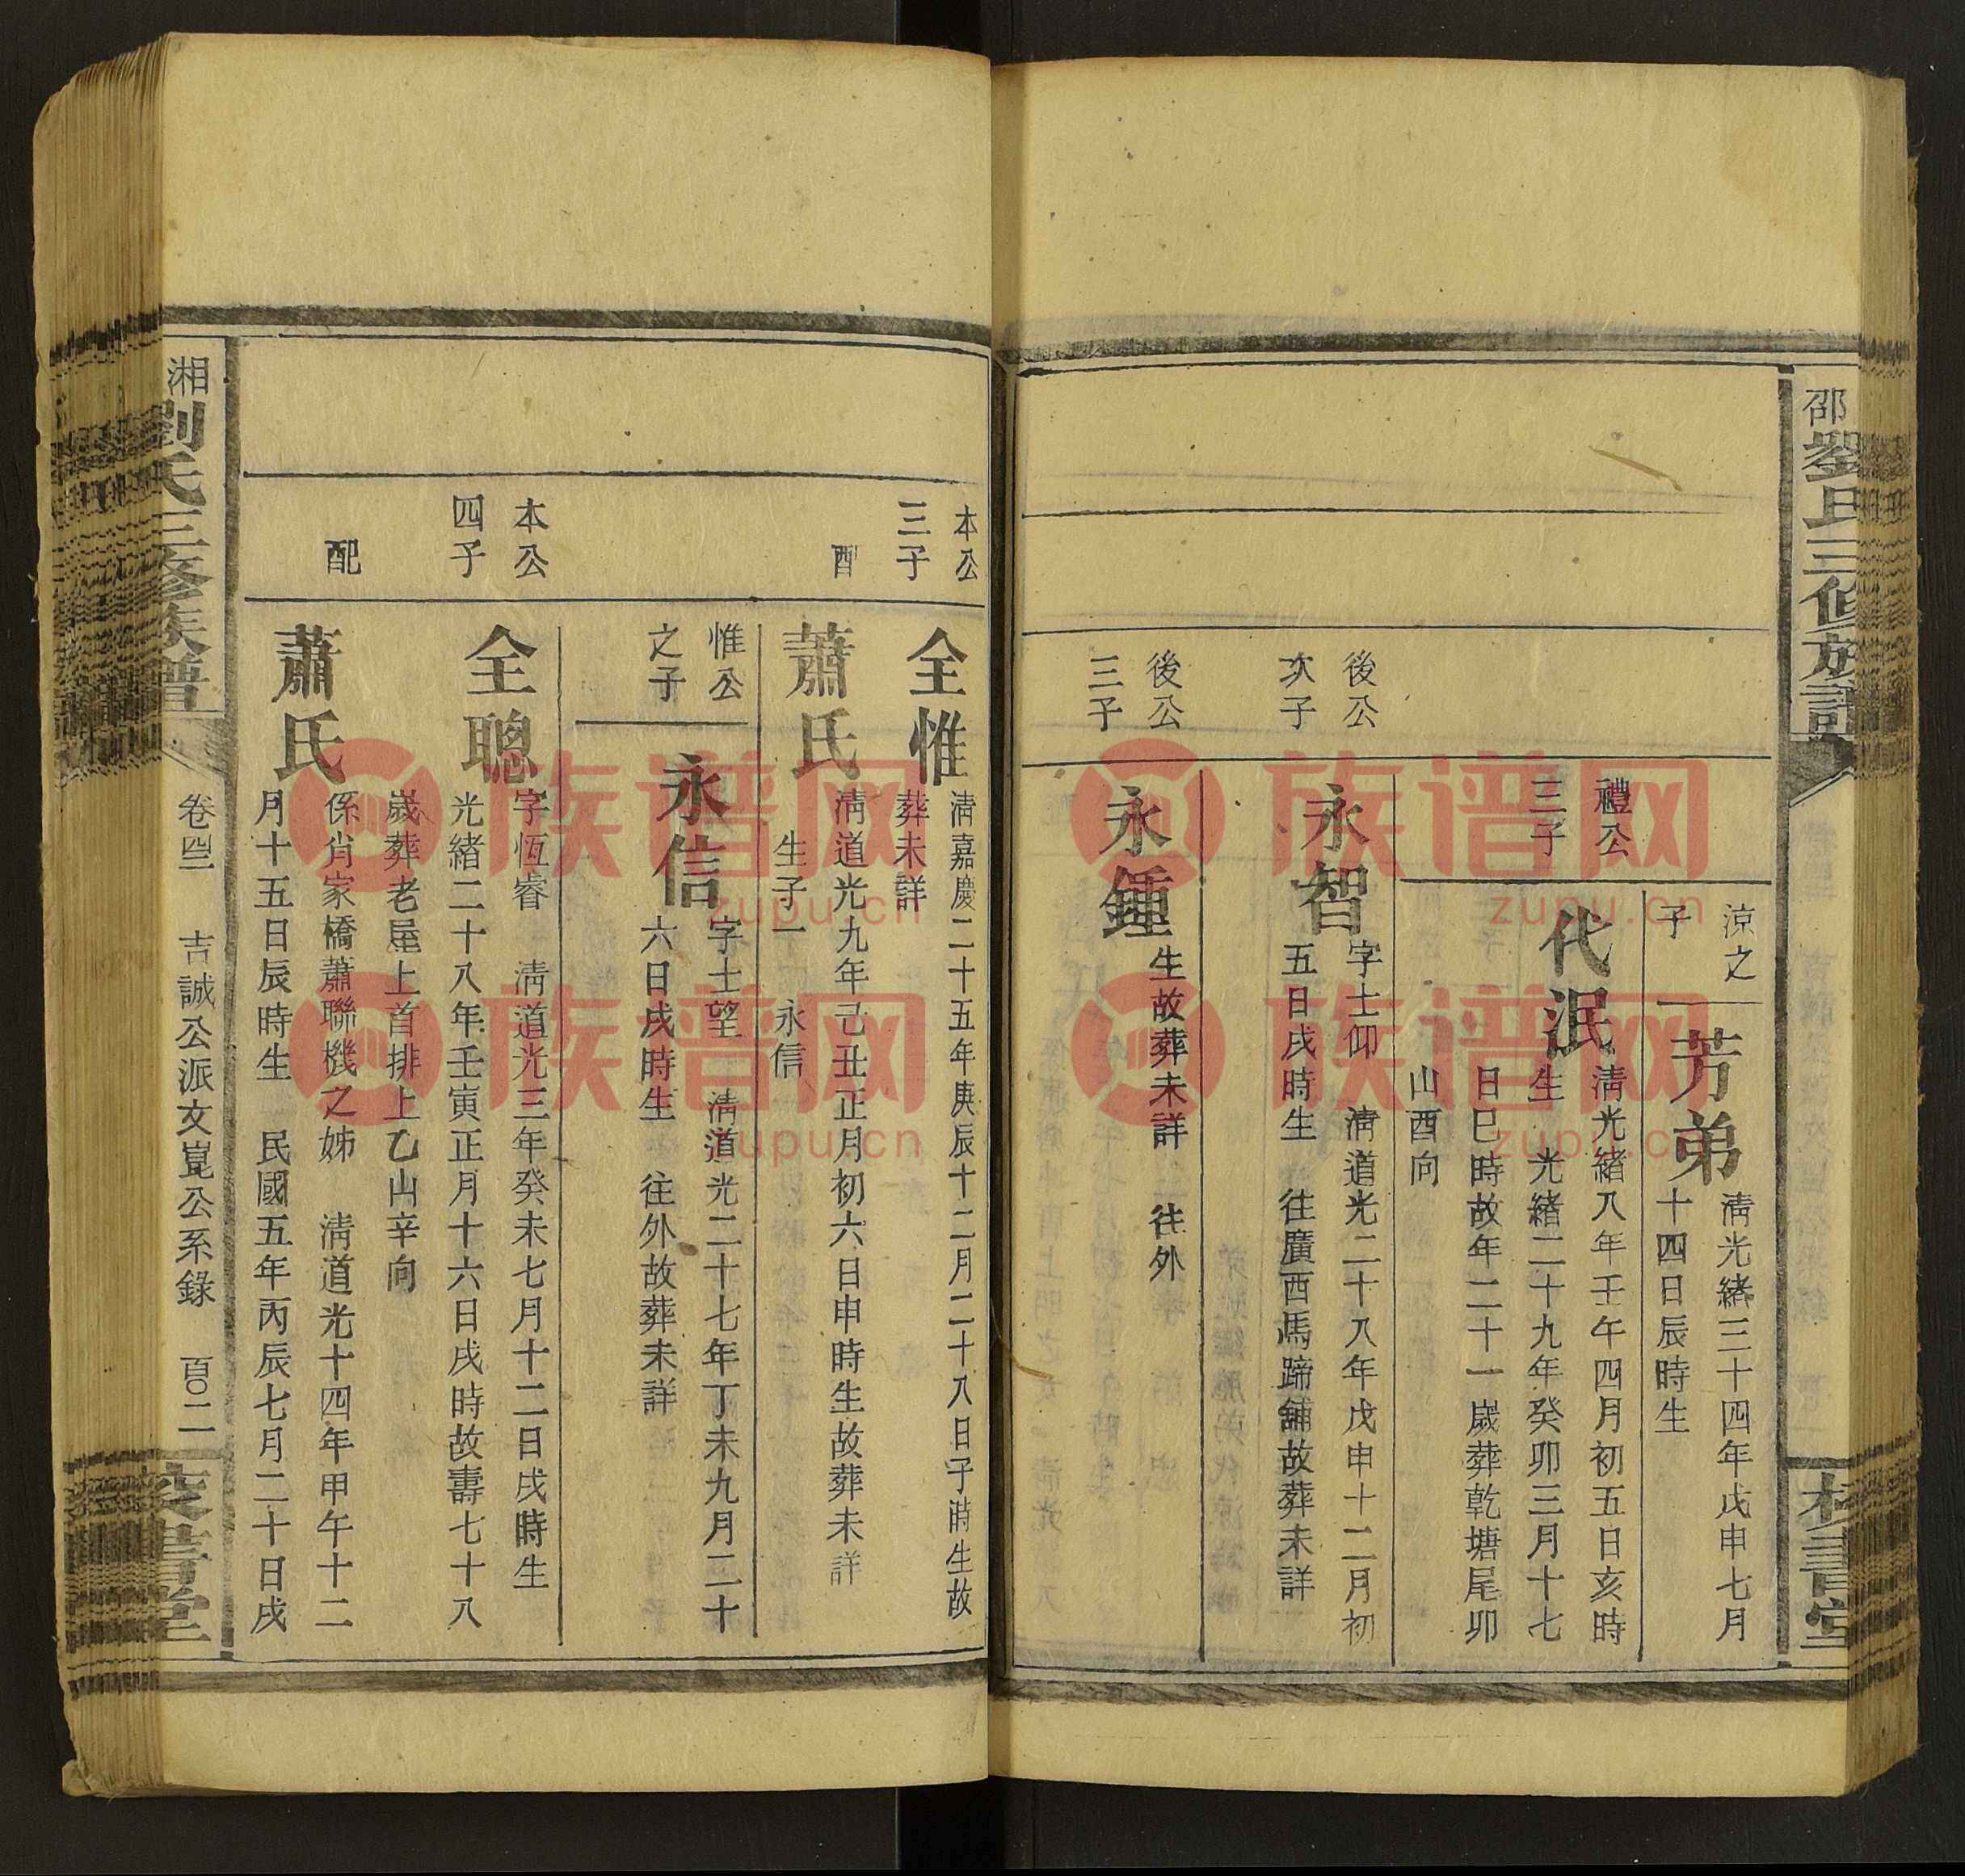 邵劉氏三修族譜
校書堂
涼之
子
芳弟
淸光緒三十四年戊申七月
十四日辰時生
禮公
三子
代泯
淸光緒八年壬午四月初五日亥時
生 光緒二十九年癸卯三月十七
日巳時故年二十一歲葬乾塘尾卯
山酉向
後公
次子
永智
字士仰 淸道光二十八年戊申十二月初
五日戌時生 往廣西馬蹄舖故葬未詳
後公
三子
永鍾
生故葬未詳 往外
本公
三子
全惟
淸嘉慶二十五年庚辰十二月二十八日子時生故
葬未詳
配
蕭氏
淸道光九年己丑正月初六日申時生故葬未詳
生子一 永信
惟公
之子
永信
字士望 淸道光二十七年丁未九月二十
六日戌時生 往外故葬未詳
本公
四子
全聰
字恆睿 淸道光三年癸未七月十二日戌時生
光緒二十八年壬寅正月十六日戌時故壽七十八
歲葬老屋上首排上乙山辛向
配
蕭氏
係肖家橋蕭聯機之姊 淸道光十四年甲午十二
月十五日辰時生 民國五年丙辰七月二十日戌
湘劉氏三修族譜
卷四二 吉誠公派文崑公系錄 百〇二
校書堂
族谱网
zupu.cn
族谱网
zupu.cn
族谱网
zupu.cn
族谱网
zupu.cn